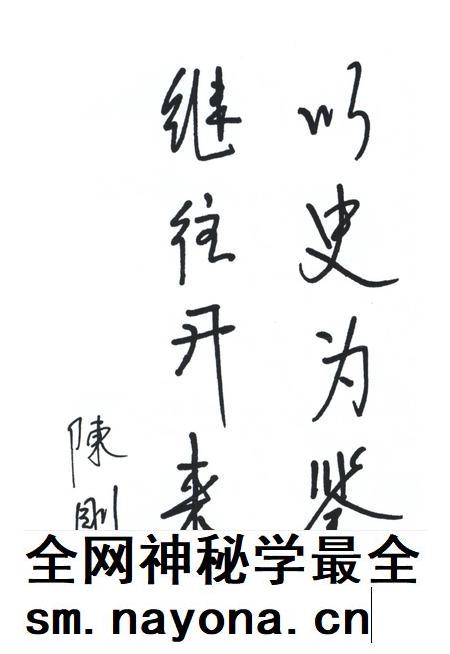 以史为鉴
继往开来
陳剛
全网神秘学最全
sm.nayona.cn